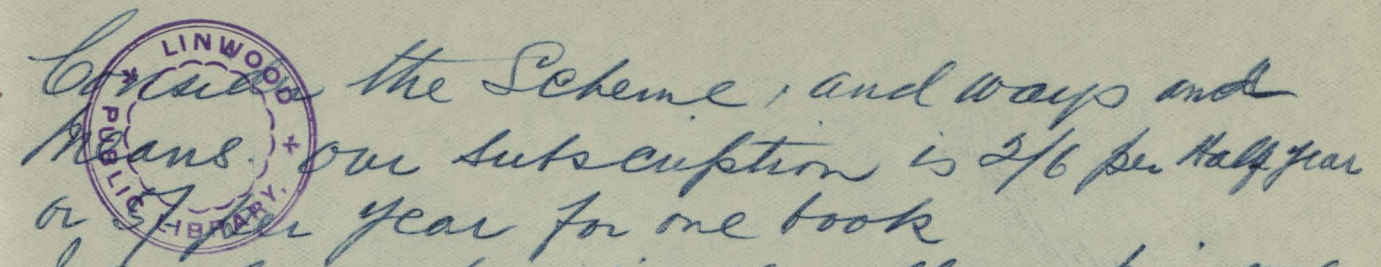 LINWOOD PUBLIC LIBRARY.
Consider the Scheme, and ways and
means. our subscription is 2/6 per Half year
or 5/ per year for one book